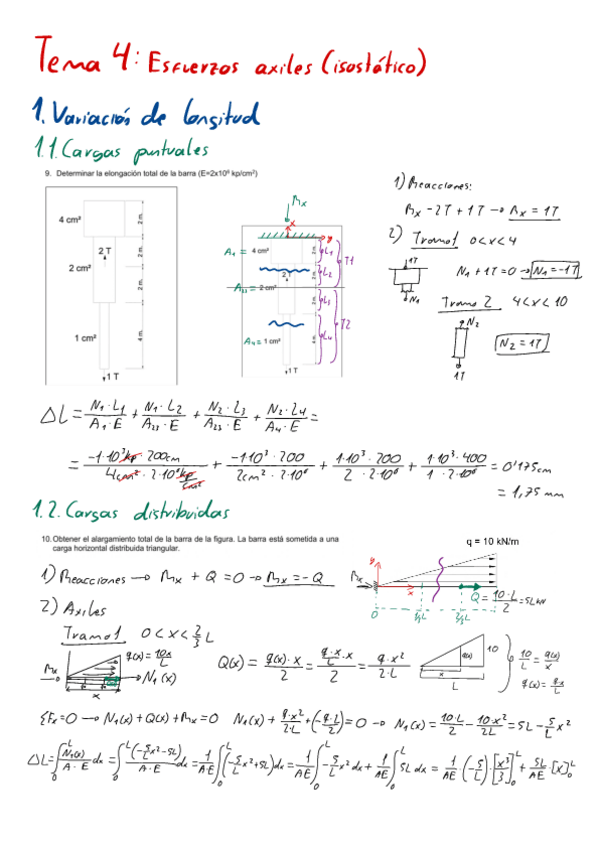 Tema 4: Esfuerzos axiles (isostático)
1. Variación de longitud
1.1. Cargas puntuales
9. Determinar la elongación total de la barra (E=2x10⁶ kp/cm²)
4 cm²
2 m.
2 T
2 cm²
2 m.
1 cm²
4 m.
1 T
Rx
x
y
A₁ = 4 cm²
L₁
T1
2 T
L₂
A₂₃ = 2 cm²
L₃
T2
A₄ = 1 cm²
L₄
1 T
1) Reacciones:
Rx - 2T + 1T → Rx = 1T
2) Tramo 1 0<x<4
1T
N₁
N₁ + 1T = 0 → N₁ = -1T
Tramo 2 4<x<10
N₂
1T
N₂ = 1T
ΔL = N₁·L₁/A₁·E + N₁·L₂/A₂₃·E + N₂·L₃/A₂₃·E + N₂·L₄/A₄·E =
= -1·10³kp·200cm/4cm²·2·10⁶kp/cm² + -1·10³·200/2cm²·2·10⁶ + 1·10³·200/2·2·10⁶ + 1·10³·400/1·2·10⁶ = 0'175cm
= 1,75 mm
1.2. Cargas distribuidas
10. Obtener el alargamiento total de la barra de la figura. La barra está sometida a una
carga horizontal distribuida triangular.
q = 10 kN/m
1) Reacciones → Rx + Q = 0 → Rx = -Q
y
Rx
x
Q = 10·L/2 = 5L kN
0
1/3L
2/3L
2) Axiles
Tramo 1 0<x<2/3 L
q(x) = 10x/L
Rx
N₁(x)
x
Q(x) = q(x)·x/2 = q·x/L·x/2 = q·x²/2·L
q(x)
10
x
L
10/L = q(x)/x
q(x) = q·x/L
ΣFx=0 → N₁(x)+Q(x)+Rx=0 N₁(x) + q·x²/2·L + (-q·L/2) = 0 → N₁(x) = 10·L/2 - 10·x²/2L = 5L - 5/L x²
ΔL = ∫₀ᴸ N₁(x)/A·E dx = ∫₀ᴸ (-5/L x²-5L)/A·E dx = 1/A·E ∫₀ᴸ (-5/L x²+5L)dx = 1/AE ∫₀ᴸ -5/L x² dx + 1/AE ∫₀ᴸ 5L dx = 1/AE·(-5/L)·[x³/3]₀ᴸ + 5L/AE·[x]₀ᴸ